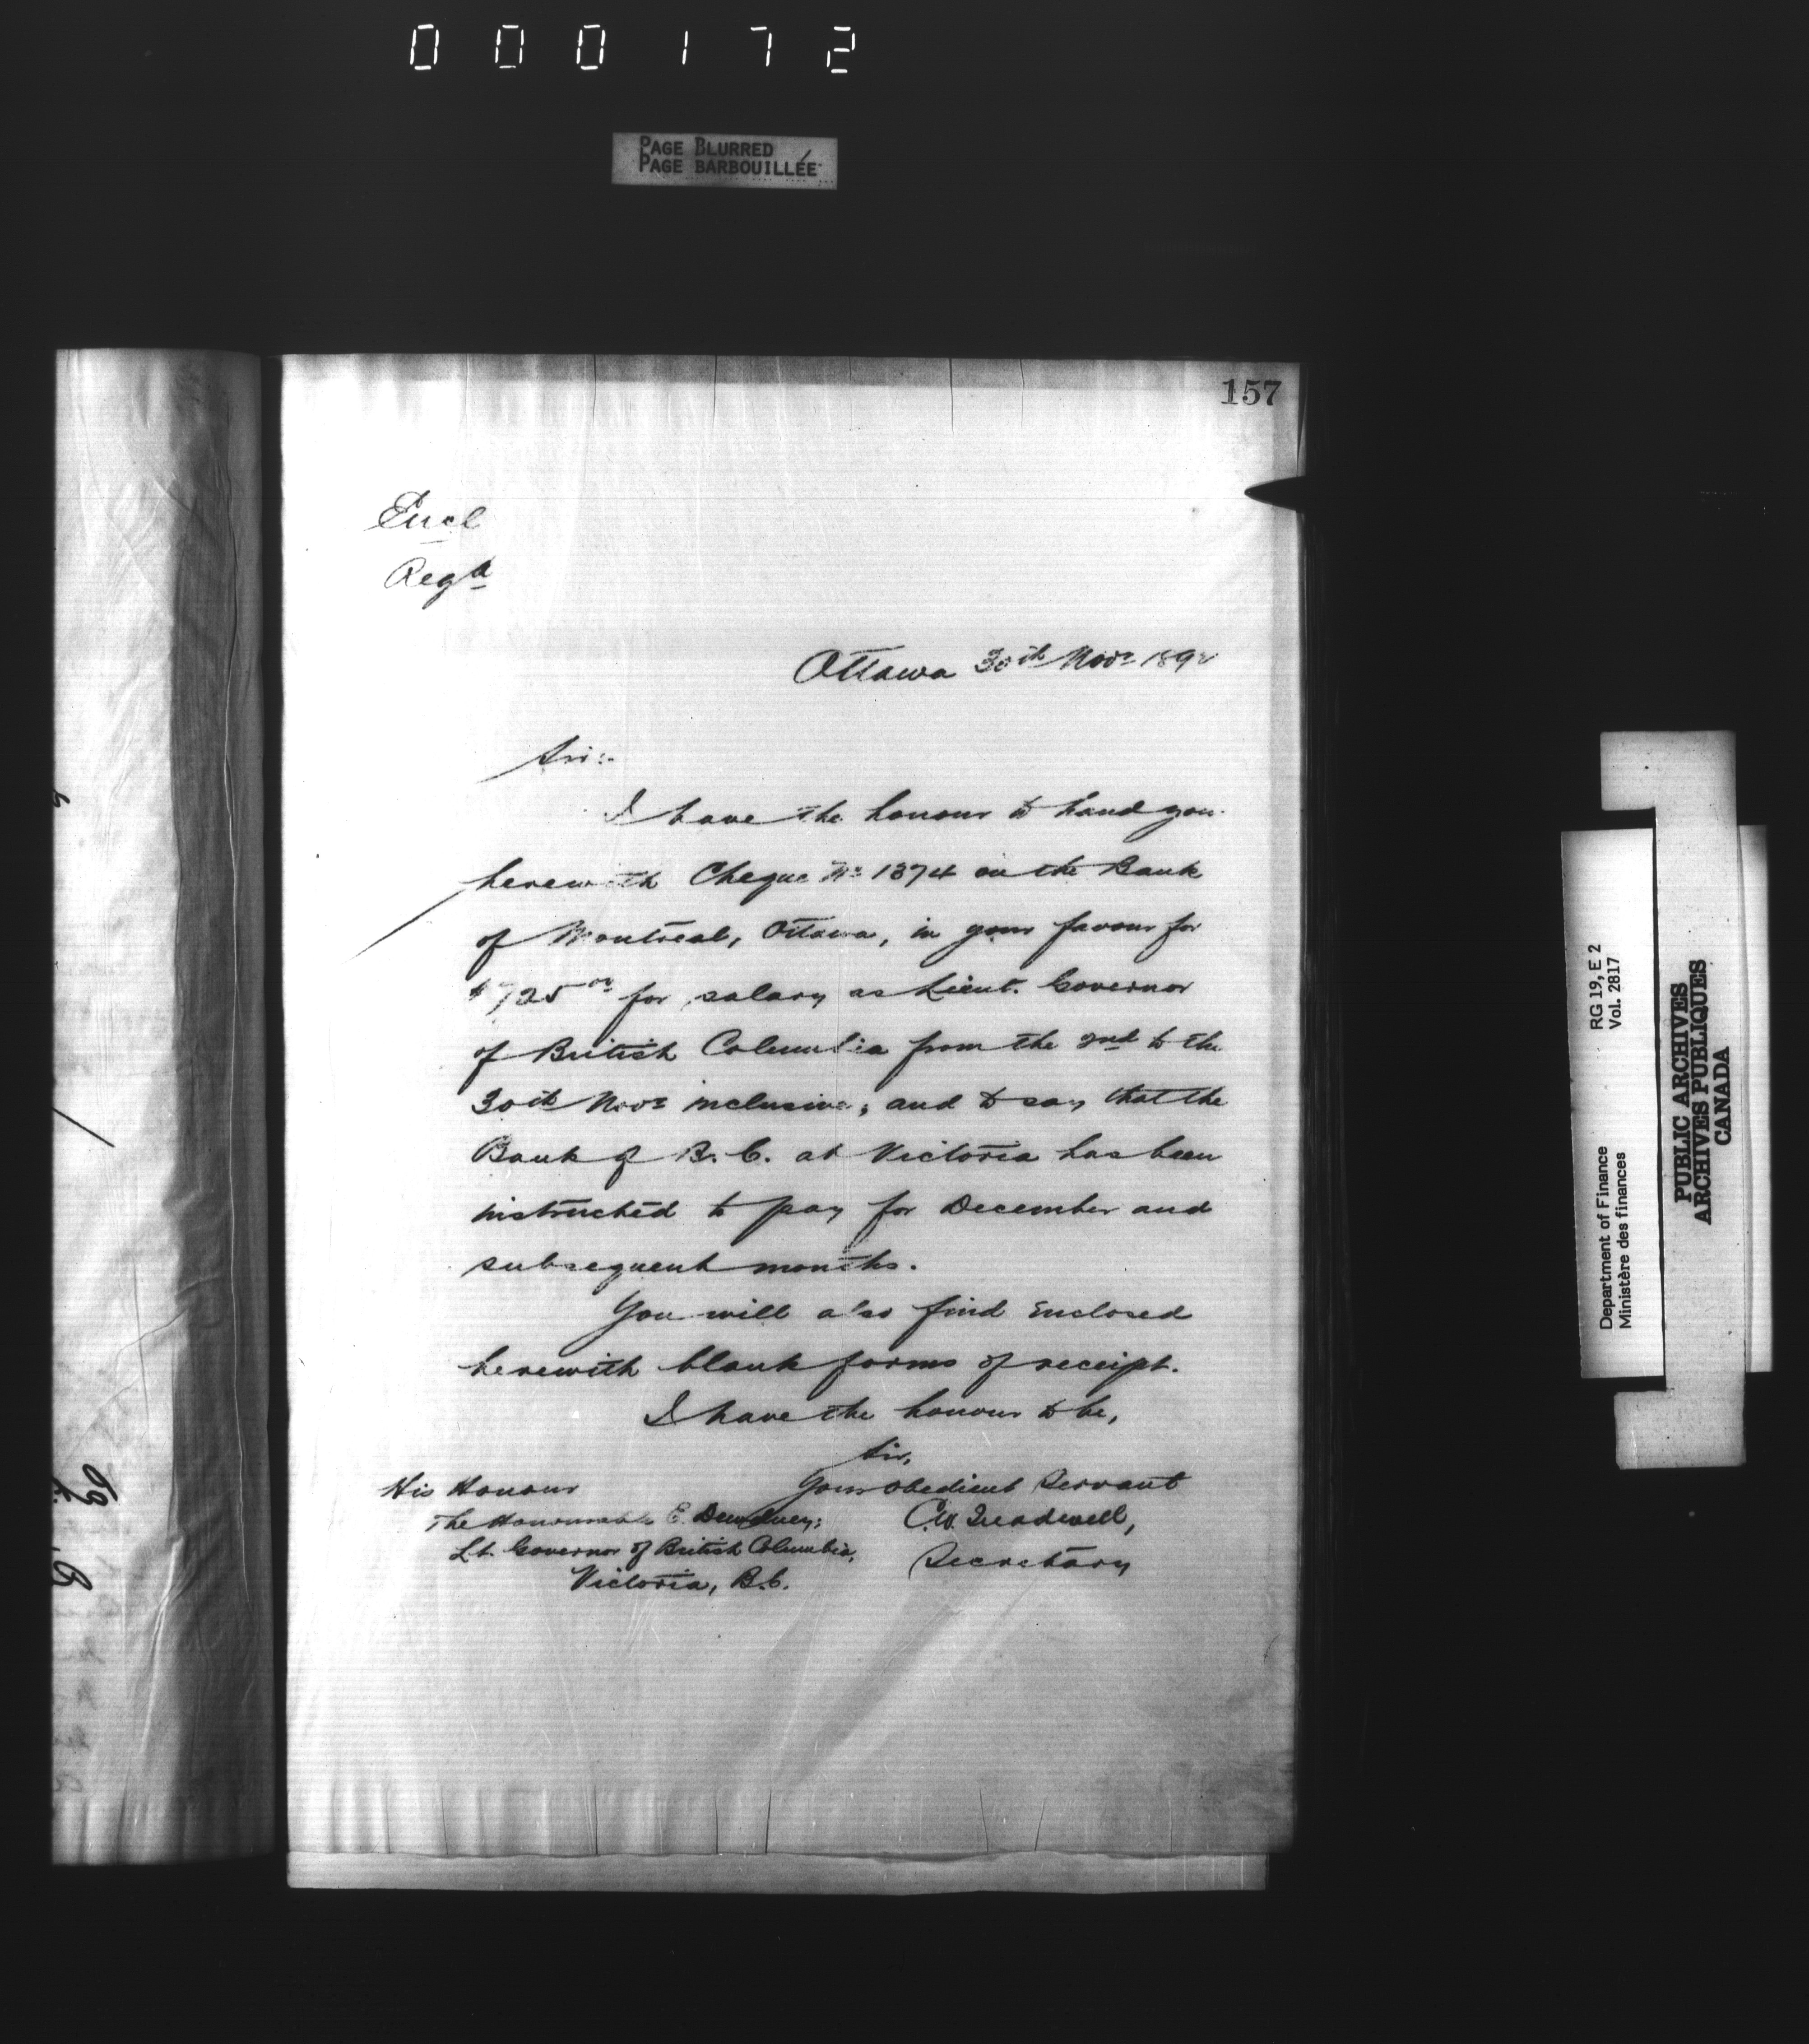 000172
PAGE BLURRED
PAGE BARBOUILLÉE
157
Encl
Regd
Ottawa 30th Novr 1892
Sir:-
I have the honour to hand you
herewith Cheque No 1374 on the Bank
of Montreal, Ottawa, in your favour for
$725 00 for salary as Lieut. Governor
of British Columbia from the 2nd to the
30th Novr inclusive, and to say that the
Bank of B. C. at Victoria has been
instructed to pay for December and
subsequent months.
You will also find enclosed
herewith blank forms of receipt.
I have the honour to be,
Sir,
Your obedient Servant
C.W. Treadwell,
Secretary
His Honour
The Honourable E. Dewdney;
Lt. Governor of British Columbia,
Victoria, B.C.
Department of Finance RG 19, E 2
Ministère des finances Vol. 2817
PUBLIC ARCHIVES
ARCHIVES PUBLIQUES
CANADA